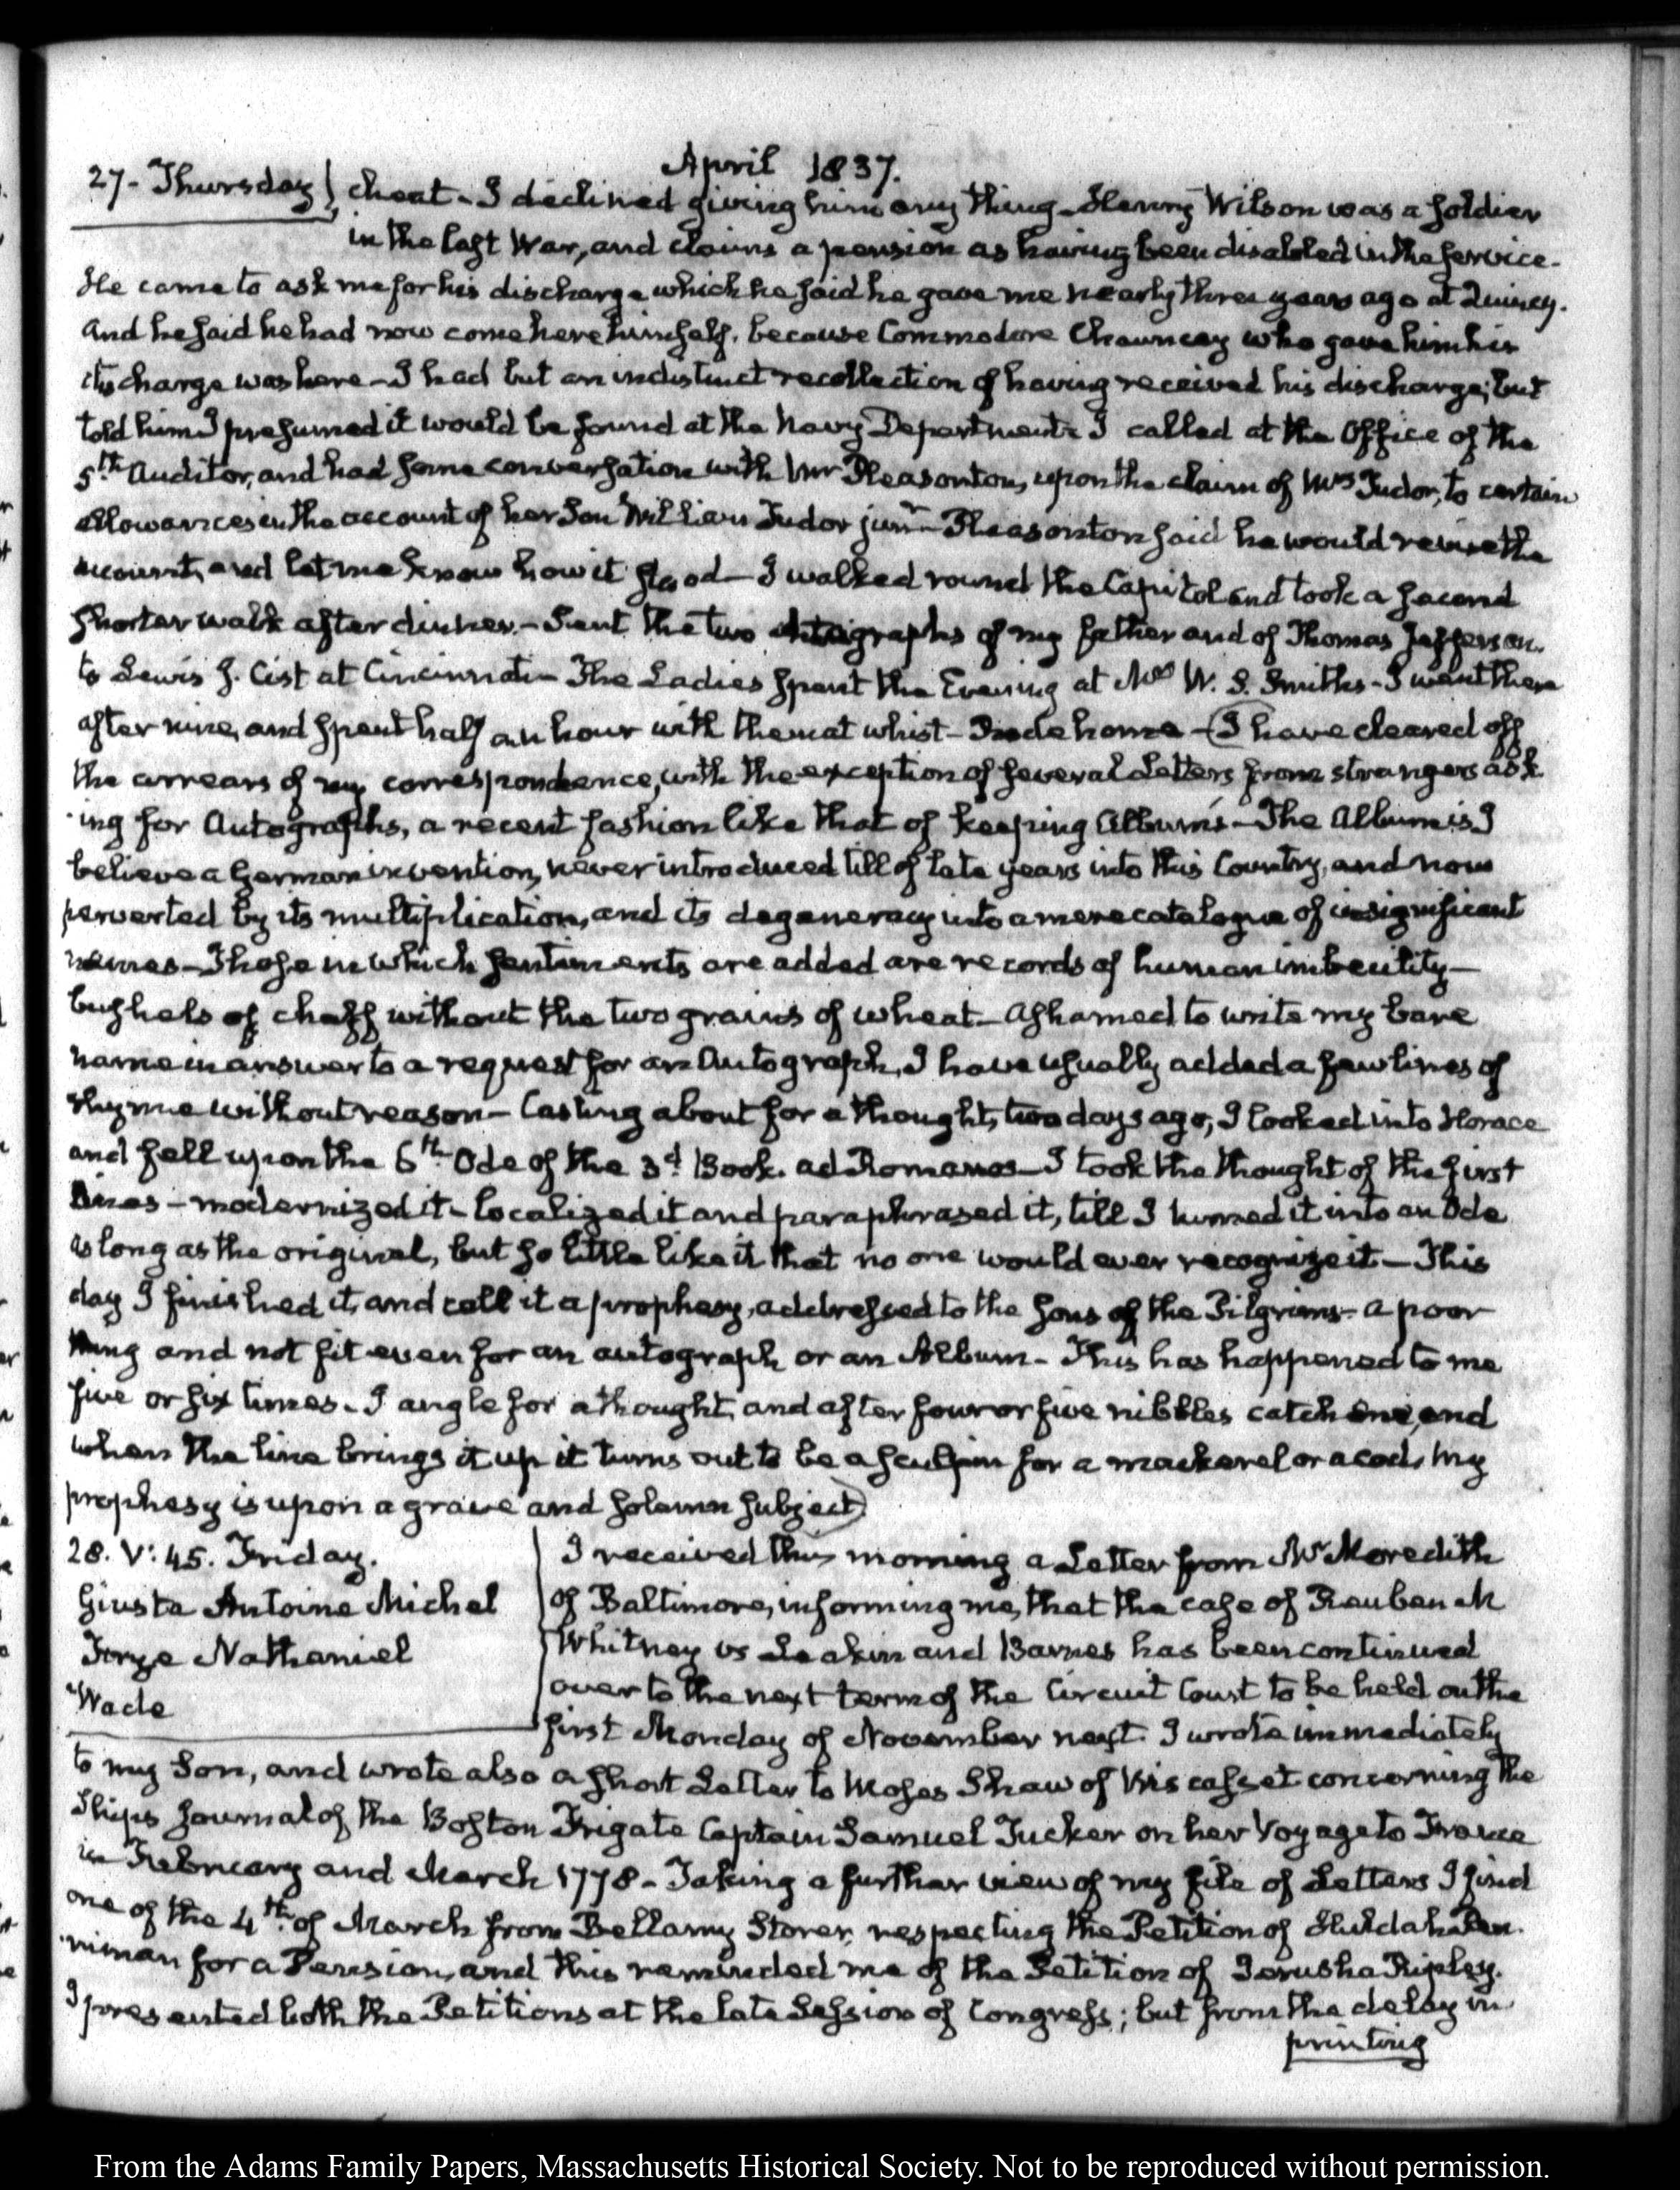 April 1837.
27 - Thursday cheat - I declined giving him any thing - Henry Wilson was a soldier
in the last War, and claims a pension as having been disabled in the service -
He came to ask me for his discharge which he said he gave me nearly three years ago at Quincy.
And he said he had now come here himself, because Commodore Chauncey who gave him his
discharge was here - I had but an indistinct recollection of having received his discharge; but
told him I presumed it would be found at the Navy Department - I called at the Office of the
5th Auditor, and had some conversation with Mr Pleasonton, upon the claim of Mrs Tudor, to certain
allowances in the account of her Son William Tudor junr - Pleasonton said he would revise the
account, and let me know how it stood - I walked round the Capitol and took a second
shorter walk after dinner. - Sent the two autographs of my father and of Thomas Jefferson
to Lewis J. Cist at Cincinnati - The Ladies spent the Evening at Mrs W. S. Smith's - I went there
after nine, and spent half an hour with them at whist - Rode home - (I have cleared off
the arrears of my correspondence, with the exception of several Letters from strangers ask
ing for Autographs, a recent fashion like that of keeping Albums - The Album is I
believe a German invention, never introduced till of late years into this Country, and now
perverted by its multiplication, and its degeneracy into a mere catalogue of insignificant
names - Those in which sentiments are added are records of human imbecility -
bushels of chaff without the two grains of wheat - Ashamed to write my bare
name in answer to a request for an Autograph, I have usually added a few lines of
rhyme without reason - Casting about for a thought, two days ago, I looked into Horace
and fell upon the 6th Ode of the 3d Book. ad Romanos - I took the thought of the first
lines - modernized it - localized it and paraphrased it, till I turned it into an Ode
as long as the original, but so little like it that no one would ever recognize it - This
day I finished it, and call it a prophesy, addressed to the Sons of the Pilgrims - a poor
thing and not fit even for an autograph or an Album - This has happened to me
five or six times - I angle for a thought, and after four or five nibbles catch one, and
when the line brings it up it turns out to be a sculpin for a mackerel or a cod. My
prophesy is upon a grave and solemn subject)
28. V: 45. Friday.
Giusta Antoine Michel
Frye Nathaniel
Wade
I received this morning a Letter from Mr Meredith
of Baltimore, informing me, that the case of Reuben M
Whitney vs Leakin and Barnes has been continued
over to the next term of the Circuit Court to be held on the
first Monday of November next. I wrote immediately
to my Son, and wrote also a short Letter to Moses Shaw of Wiscasset concerning the
Ships journal of the Boston Frigate Captain Samuel Tucker on her Voyage to France
in February and March 1778 - Taking a further view of my file of Letters I find
one of the 4th of March from Bellamy Storer, respecting the Petition of Huldah
niman for a Pension, and this reminded me of the Petition of Jerusha Ripley.
I presented both the Petitions at the late Session of Congress; but from the delay in
printing
From the Adams Family Papers, Massachusetts Historical Society. Not to be reproduced without permission.